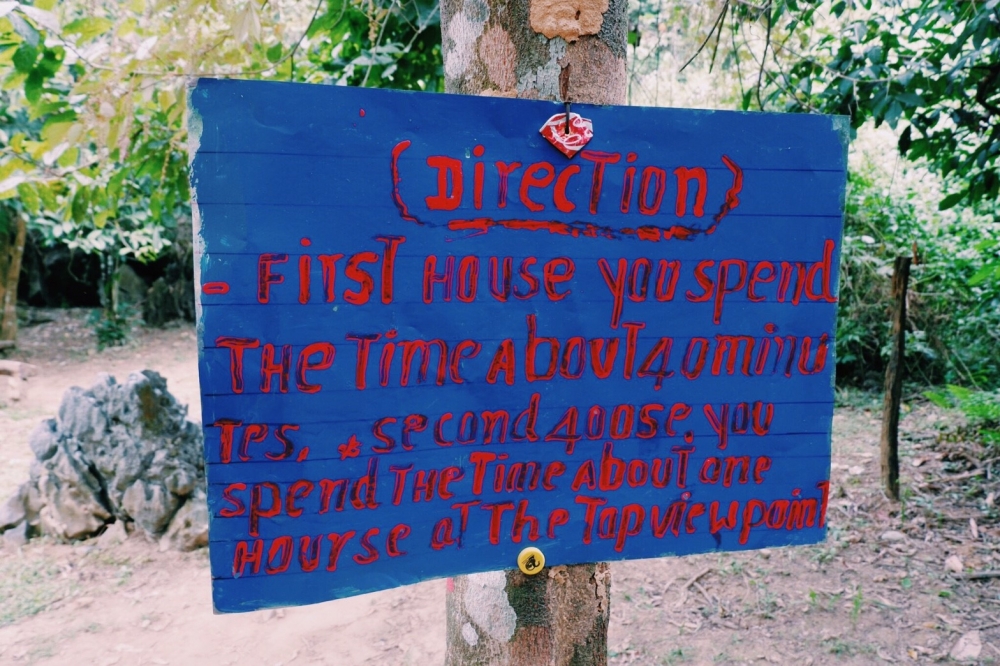 (Direction)
- First House you spend
The Time About 40 minu
Tes, * second 4oose. you
spend The Time About one
Hourse at The Top view point